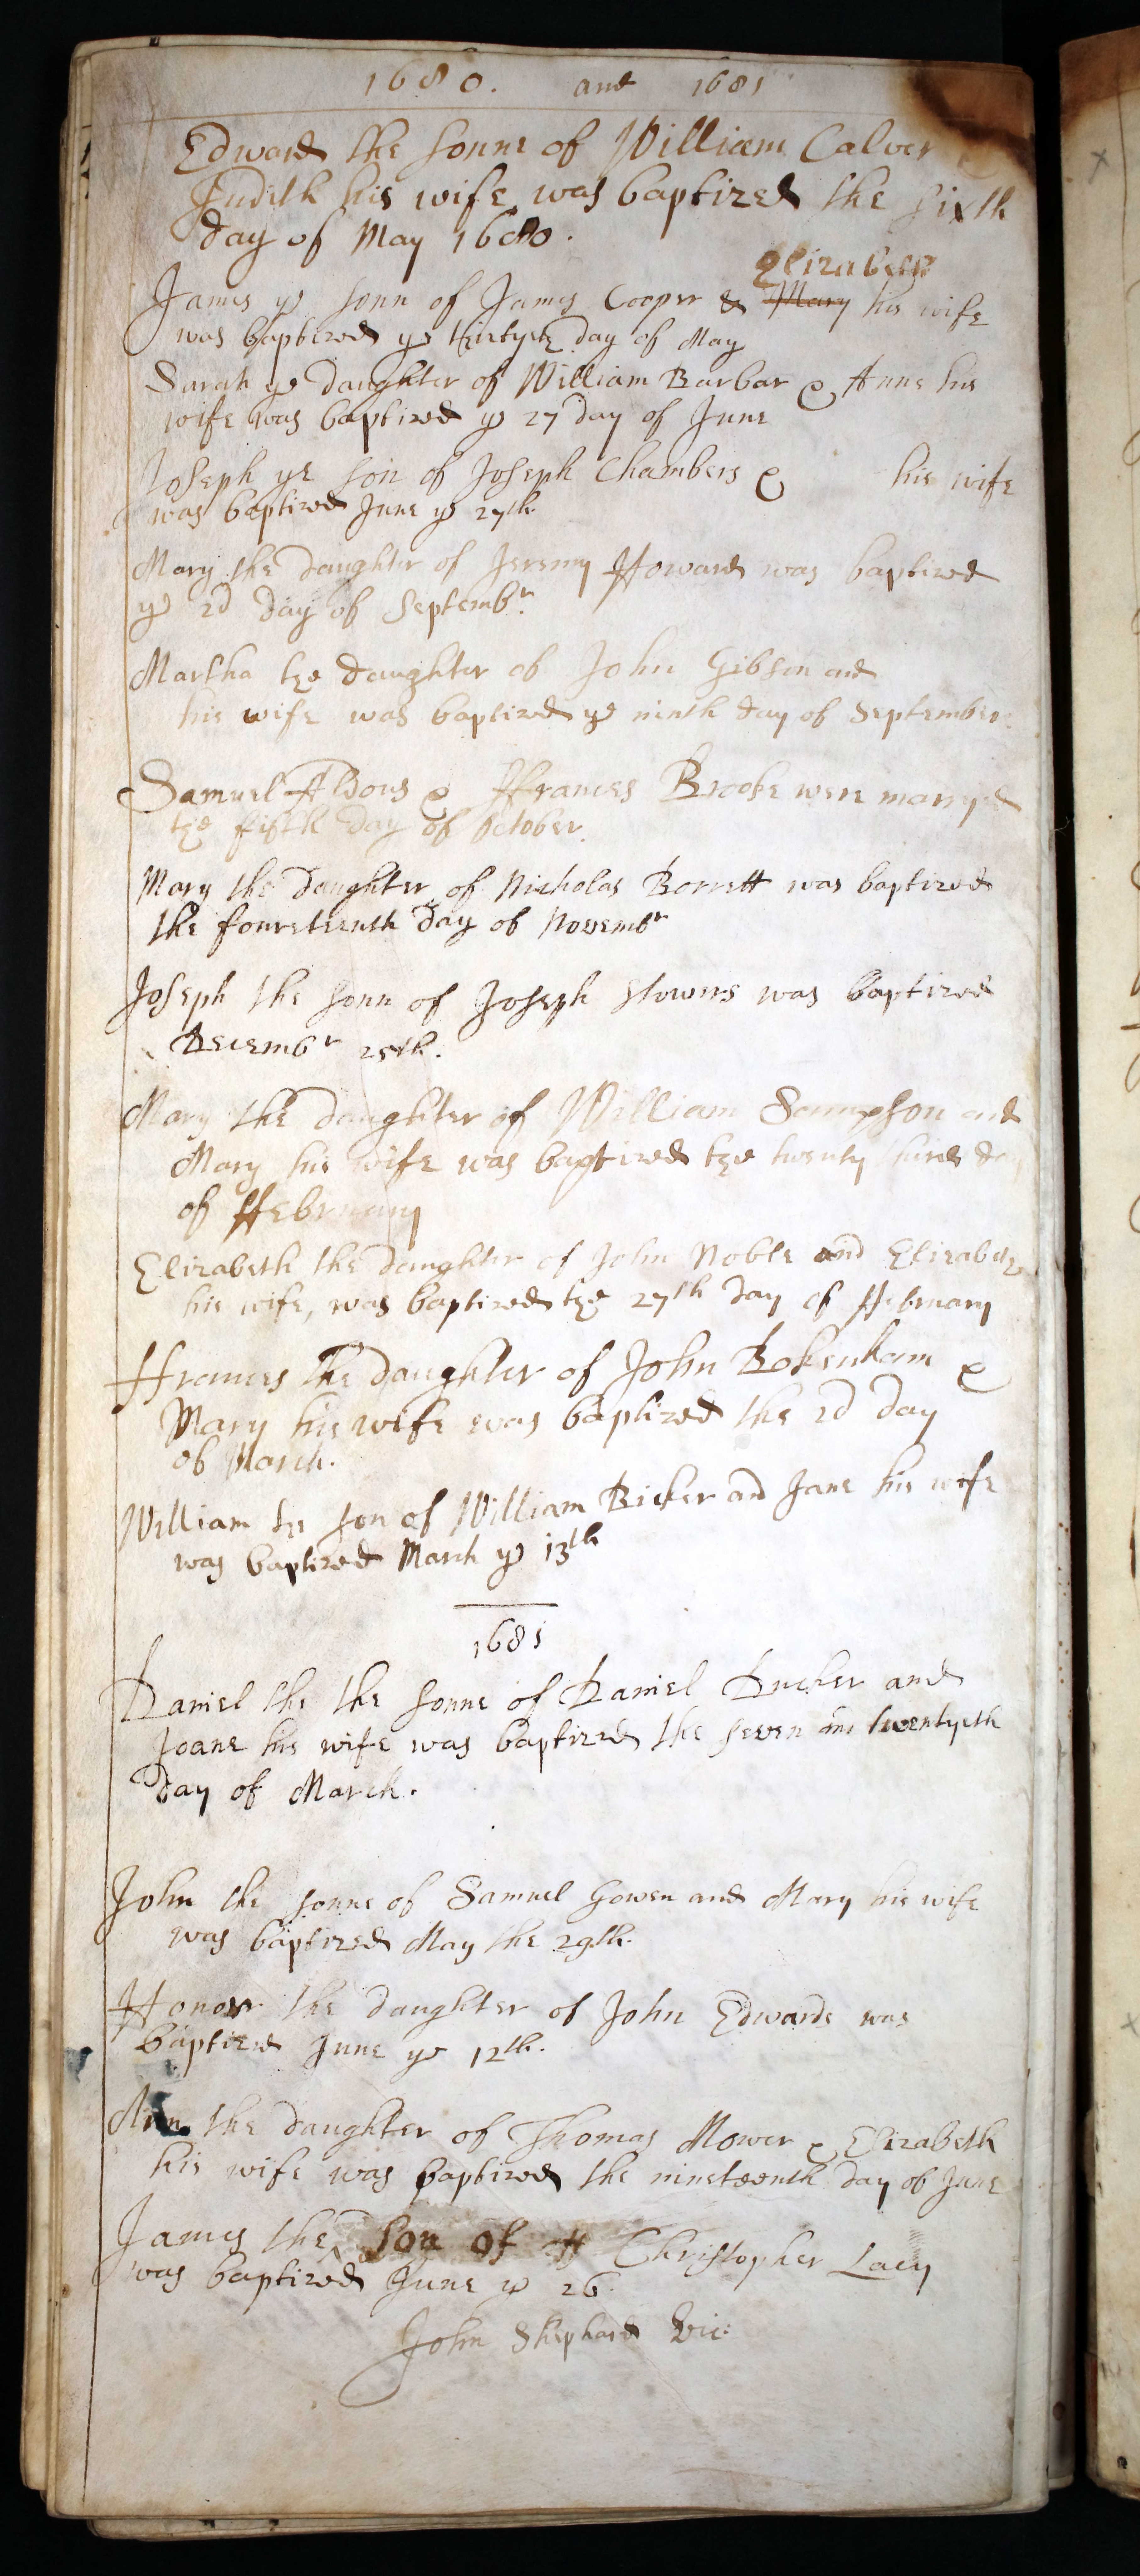 1680. and 1681
Edward the sonne of William Calver
Judith his wife was baptized the sixth
day of May 1680.
Elizabeth
James ye sonn of James Cooper & Mary his wife
was baptized ye thirtyeth day of May
Sarah ye daughter of William Barbar & Anne his
wife was baptized ye 27 day of June
Joseph ye son of Joseph Chambers & his wife
was baptized June ye 27th.
Mary the daughter of Jeremy Howard was baptized
ye 2d day of Septembr.
Martha the daughter of John Gibson and
his wife was baptized ye ninth day of September.
Samuel Aldous & ffrances Brooke were marryed
the fifth day of October.
Mary the daughter of Nicholas Borrett was baptized
the foureteenth day of Novembr
Joseph the sonn of Joseph Stowers was baptized
Decembr 25th.
Mary the daughter of William Sampson and
Mary his wife was baptized the twenty third day
of ffebruary
Elizabeth the daughter of John Noble and Elizabeth
his wife, was baptized the 27th day of ffebruary
ffrances the daughter of John Bokenham &
Mary his wife was baptized the 2d day
of March.
William the son of William Bicker and Jane his wife
was baptized March ye 13th
1681
Daniel the the sonne of Daniel Ducker and
Joane his wife was baptized the seven and twentyeth
day of March.
John the sonne of Samuel Gowen and Mary his wife
was baptized May the 29th.
Honour the daughter of John Edwards was
baptized June ye 12th.
Ann the daughter of Thomas Mower & Elizabeth
his wife was baptized the nineteenth day of June
James the son of Christopher Lacy
was baptized June ye 26.
John Shephard Vic: